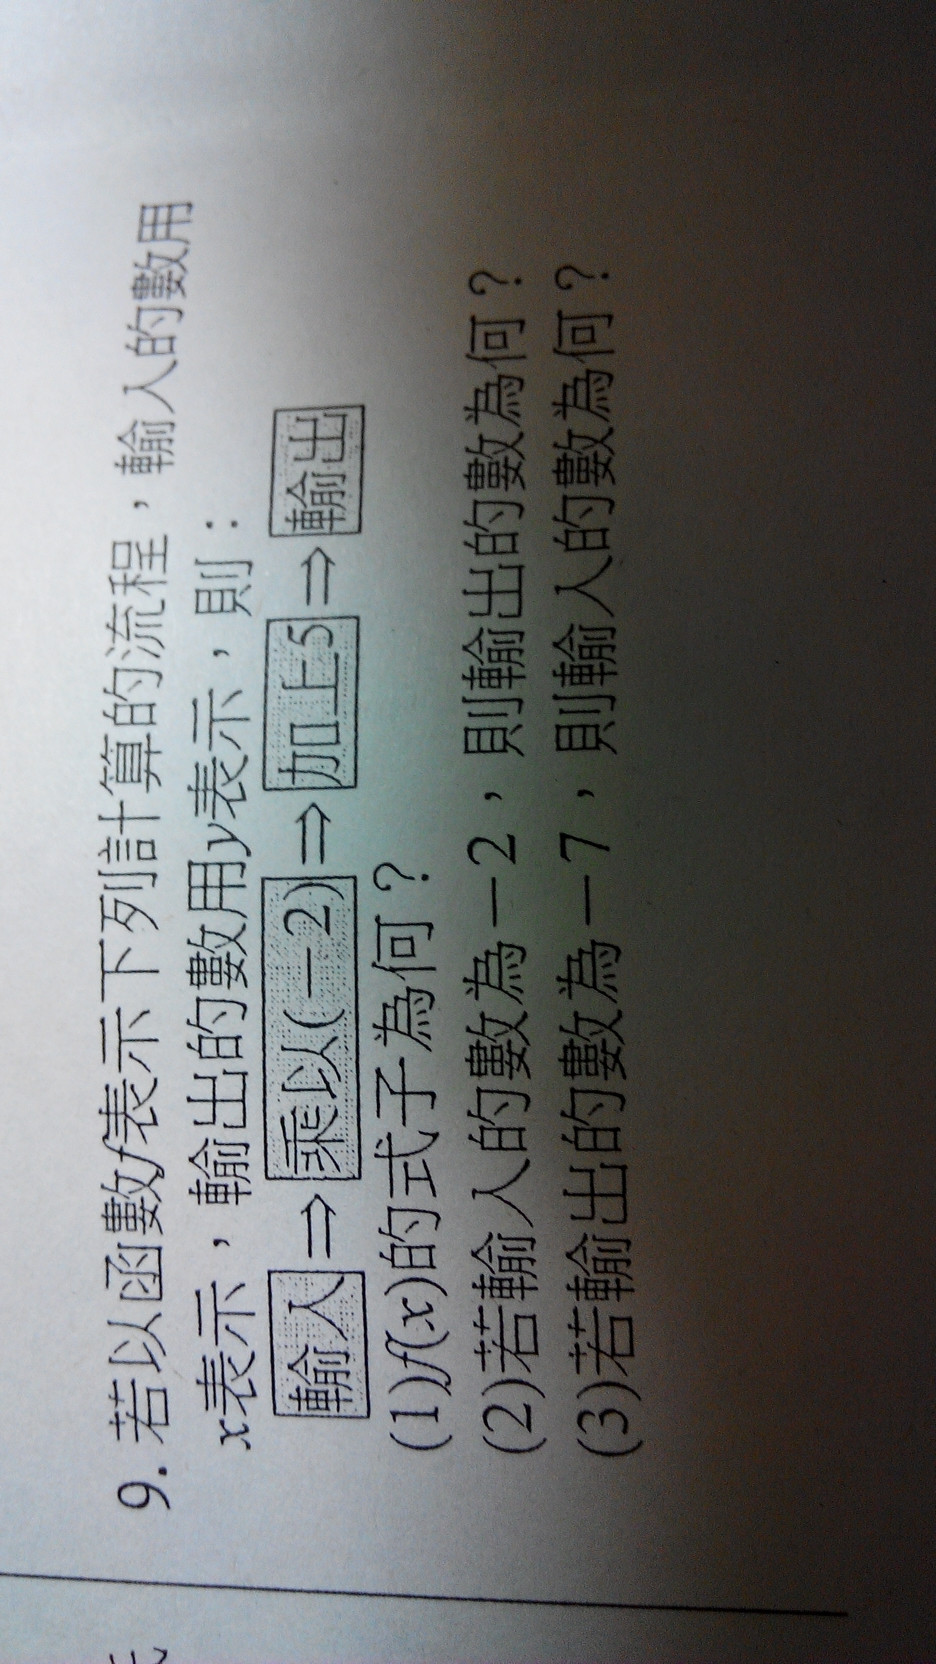 9. 若以函數f表示下列計算的流程，輸入的數用
x表示，輸出的數用y表示，則：
輸入⇒乘以(－2)⇒加上5⇒輸出
(1)f(x)的式子為何？
(2)若輸入的數為－2，則輸出的數為何？
(3)若輸出的數為－7，則輸入的數為何？